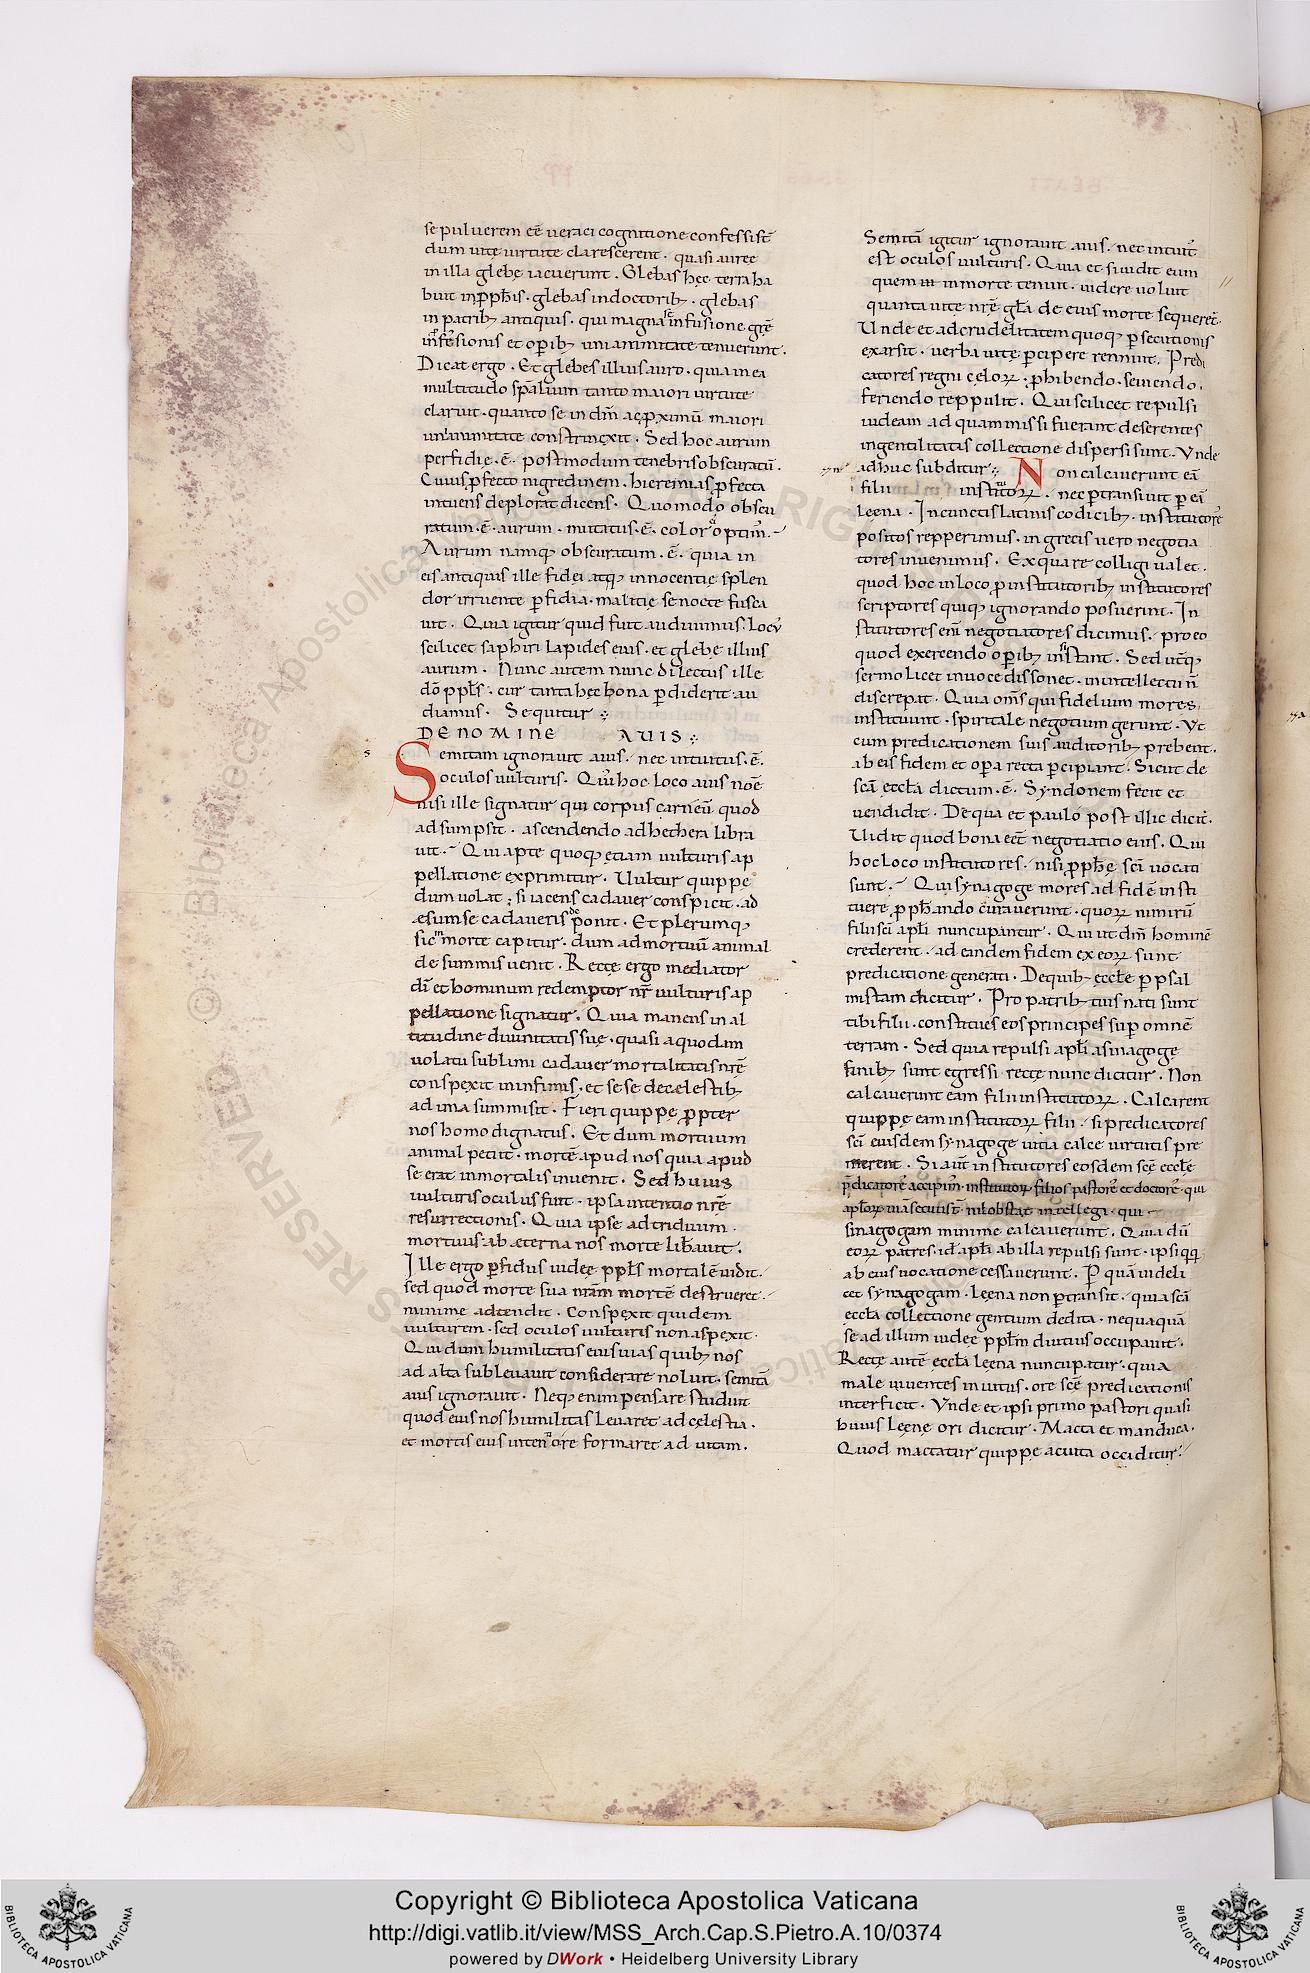 se pulverem eē veraci cognitione confessisť
dum vitę virtute clarescerent · quasi auree
in illa glebę iacuerunt · Glebas hęc terra ha
buit in ꝓph̄is · glebas in doctorib; · glebas
in patrib; antiquis · qui magna sͨ infusione grę̄
in ꝓfēsionis et oꝑib; unianimitate tenuerunt ·
Dicat ergo · Et glebes illius auro · quia in ea
multitudo sp̄alium tanto maiori virtute
claruit · quanto se in dm̄ ac ꝓximū maiori
unianimitate constrinxit · Sed hoc aurum
perfidię · ē · postmodum tenebris obscuratū ·
Cuius ꝑfecto nigredinem · hieremias ꝑfecta
intuens deplorat dicens · Quomodo obscu
ratum · ē · aurum · mutatus · ē · color optim᷒ ·
Aurum namq; obscuratum · ē · quia in
eis antiquus ille fidei atq; innocentię splen
dor irruente ꝑfidia · malitię se nocte fusca
vit · Quia igitur quid fuit audivimus · Loc᷒
scilicet saphiri lapides eius · et glebę illius
aurum · Nunc autem nunc dilectus ille
dō ppl̄s · cur tanta hęc bona ꝑdiderit · au
diamus · Sequitur :·
DE NOMINE AVIS :·
s Semitam ignoravit avis · nec intuitus · ē ·
oculos vulturis · Qui hoc loco avis nōe
nisi ille signatur qui corpus carneū quod
adsumpsit · ascendendo ad hethera libra
vit · Qui apte quoq; etiam vulturis ap
pellatione exprimitur · Vultur quippe
dum volat ; si iacens cadaver conspicit · ad
æsum se cadaveris deponit · Et plerumq;
sic in morte capitur · dum ad mortuū animal
de summis venit · Recte ergo mediator
dī et hominum redemptor nr̄ vulturis ap
pellatione signatur · Quia manens in al
titudine divinitatis suę · quasi a quodam
volatu sublimi cadaver mortalitatis nrē
conspexit in infimis · et sese de cælestib;
ad ima summisit · Fieri quippe ꝓpter
nos homo dignatus · Et dum mortuum
animal petiit · mortē apud nos qui apud
se erat inmortalis invenit · Sed huius
vulturis oculus fuit · ipsa intentio nrē
resurrectionis · Quia ipse ad triduum
mortuus · ab æterna nos morte lib̄avit ·
Ille ergo ꝑfidus iudeę ppl̄s mortalē vidit ·
sed quod morte sua nrām mortē destrueret ·
minime adtendit · Conspexit quidem
vulturem · sed oculos vulturis non aspexit ·
Qui dum humilitatis eius vias quib; nos
ad alta sublevavit considerare noluit · semitā
avis ignoravit · Neq; enim pensare studuit
quod eius nos humilitas levaret ad cęlestia ·
et mortis eius intentio reformaret ad vitam ·
Semitā igitur ignoravit avis · nec intuit᷒
est oculos vulturis · Quia et si vidit eum
quem in morte tenuit · videre voluit
quanta vitę nrē gl̄a de eius morte sequeret᷒ ·
Unde et ad crudelitatem quoq; ꝑsecutionis
exarsit · verba vitę ꝑcipere rennuit · Predi
catores regni cęloꝝ ; ꝓhibendo · seviendo ·
feriendo reppulit · Qui scilicet repulsi
iudeam ad quam missi fuerant deserentes
in gentilitatis collectione dispersi sunt · Vnde
adhuc subditur :· Non calcaverunt eā
filii institoꝝ · nec ꝑtransivit ꝑ eā
leęna · In cunctis latinis codicib; · institutore᷒
positos repperimus · in grecis vero negotia
tores invenimus · Ex qua re colligi valet ·
quod hoc in loco ꝓ institoribꝫ institutores
scriptores quiq; ignorando posuerint · In
stitutores em̄ negotiatores dicimus · pro eo
quod exercendo oꝑib; instant · Sed utq;
sermo licet in voce dissonet · in intellectu n̄
discrepat · Quia om̄s qui fidelium mores
instituunt · spiritale negotium gerunt · Vt
cum predicationem suis auditorib; prebent ·
ab eis fidem et oꝑa recta ꝑcipiant · Sicut de
scā eccl̄a dictum · ē · Syndonem fecit et
vendidit · De qua et paulo post illic dicit᷒ ·
Vidit quod bona eēt negotiatio eius · Qui
hoc loco institutores · nisi ꝓph̄ę scī vocati
sunt · Qui synagoge mores ad fidē insti
tuere ꝓph̄ando curaverunt · quoꝝ nimirū
filii scī apl̄i nuncupantur · Qui ut dm̄ hominē
crederent · ad eandem fidem ex eoꝝ sunt
predicatione generati · De quib; eccl̄e ꝑ psal
mistam dicitur · Pro patrib; tuis nati sunt
tibi filii · constitues eos principes suꝑ omnē
terram · Sed quia repulsi apl̄i a sinagoge
finib; sunt egressi · recte nunc dicitur · Non
calcaverunt eam filii institutoꝝ · Calcarent
quippe eam institutoꝝ filii · si predicatores
scī eiusdem synagoge vitia calce virtutis pre
merent · Si aut̄ institutores eosdem scē eccl̄ę
p̄dicatore᷒ accipim᷒ · institutoꝝ filios pastore᷒ et doctore᷒ · qui
apl̄oꝝ viā secuti s̄t nihil obstat intellegi · qui
sinagogam minime calcaverunt · Quia dū
eoꝝ patres · id᷒ apl̄i ab illa repulsi sunt · ipsi qq;
ab eius vocatione cessaverunt · P quā videli
cet synagogam · leęna non ꝑtransit · quia scā
eccl̄a collectione gentium dedita · nequaquā
se ad illum iudeę ppl̄m diutius occupavit ·
Recte autē eccl̄a leęna nuncupatur · quia
male viventes in vitiis · ore scē predicationis
interficit · Vnde et ipsi primo pastori quasi
huius leęne ori dicitur · Macta et manduca ·
Quod mactatur quippe a vita occiditur ·
Copyright © Biblioteca Apostolica Vaticana
http://digi.vatlib.it/view/MSS_Arch.Cap.S.Pietro.A.10/0374
powered by DWork • Heidelberg University Library
BIBLIOTECA APOSTOLICA VATICANA
BIBLIOTECA APOSTOLICA VATICANA